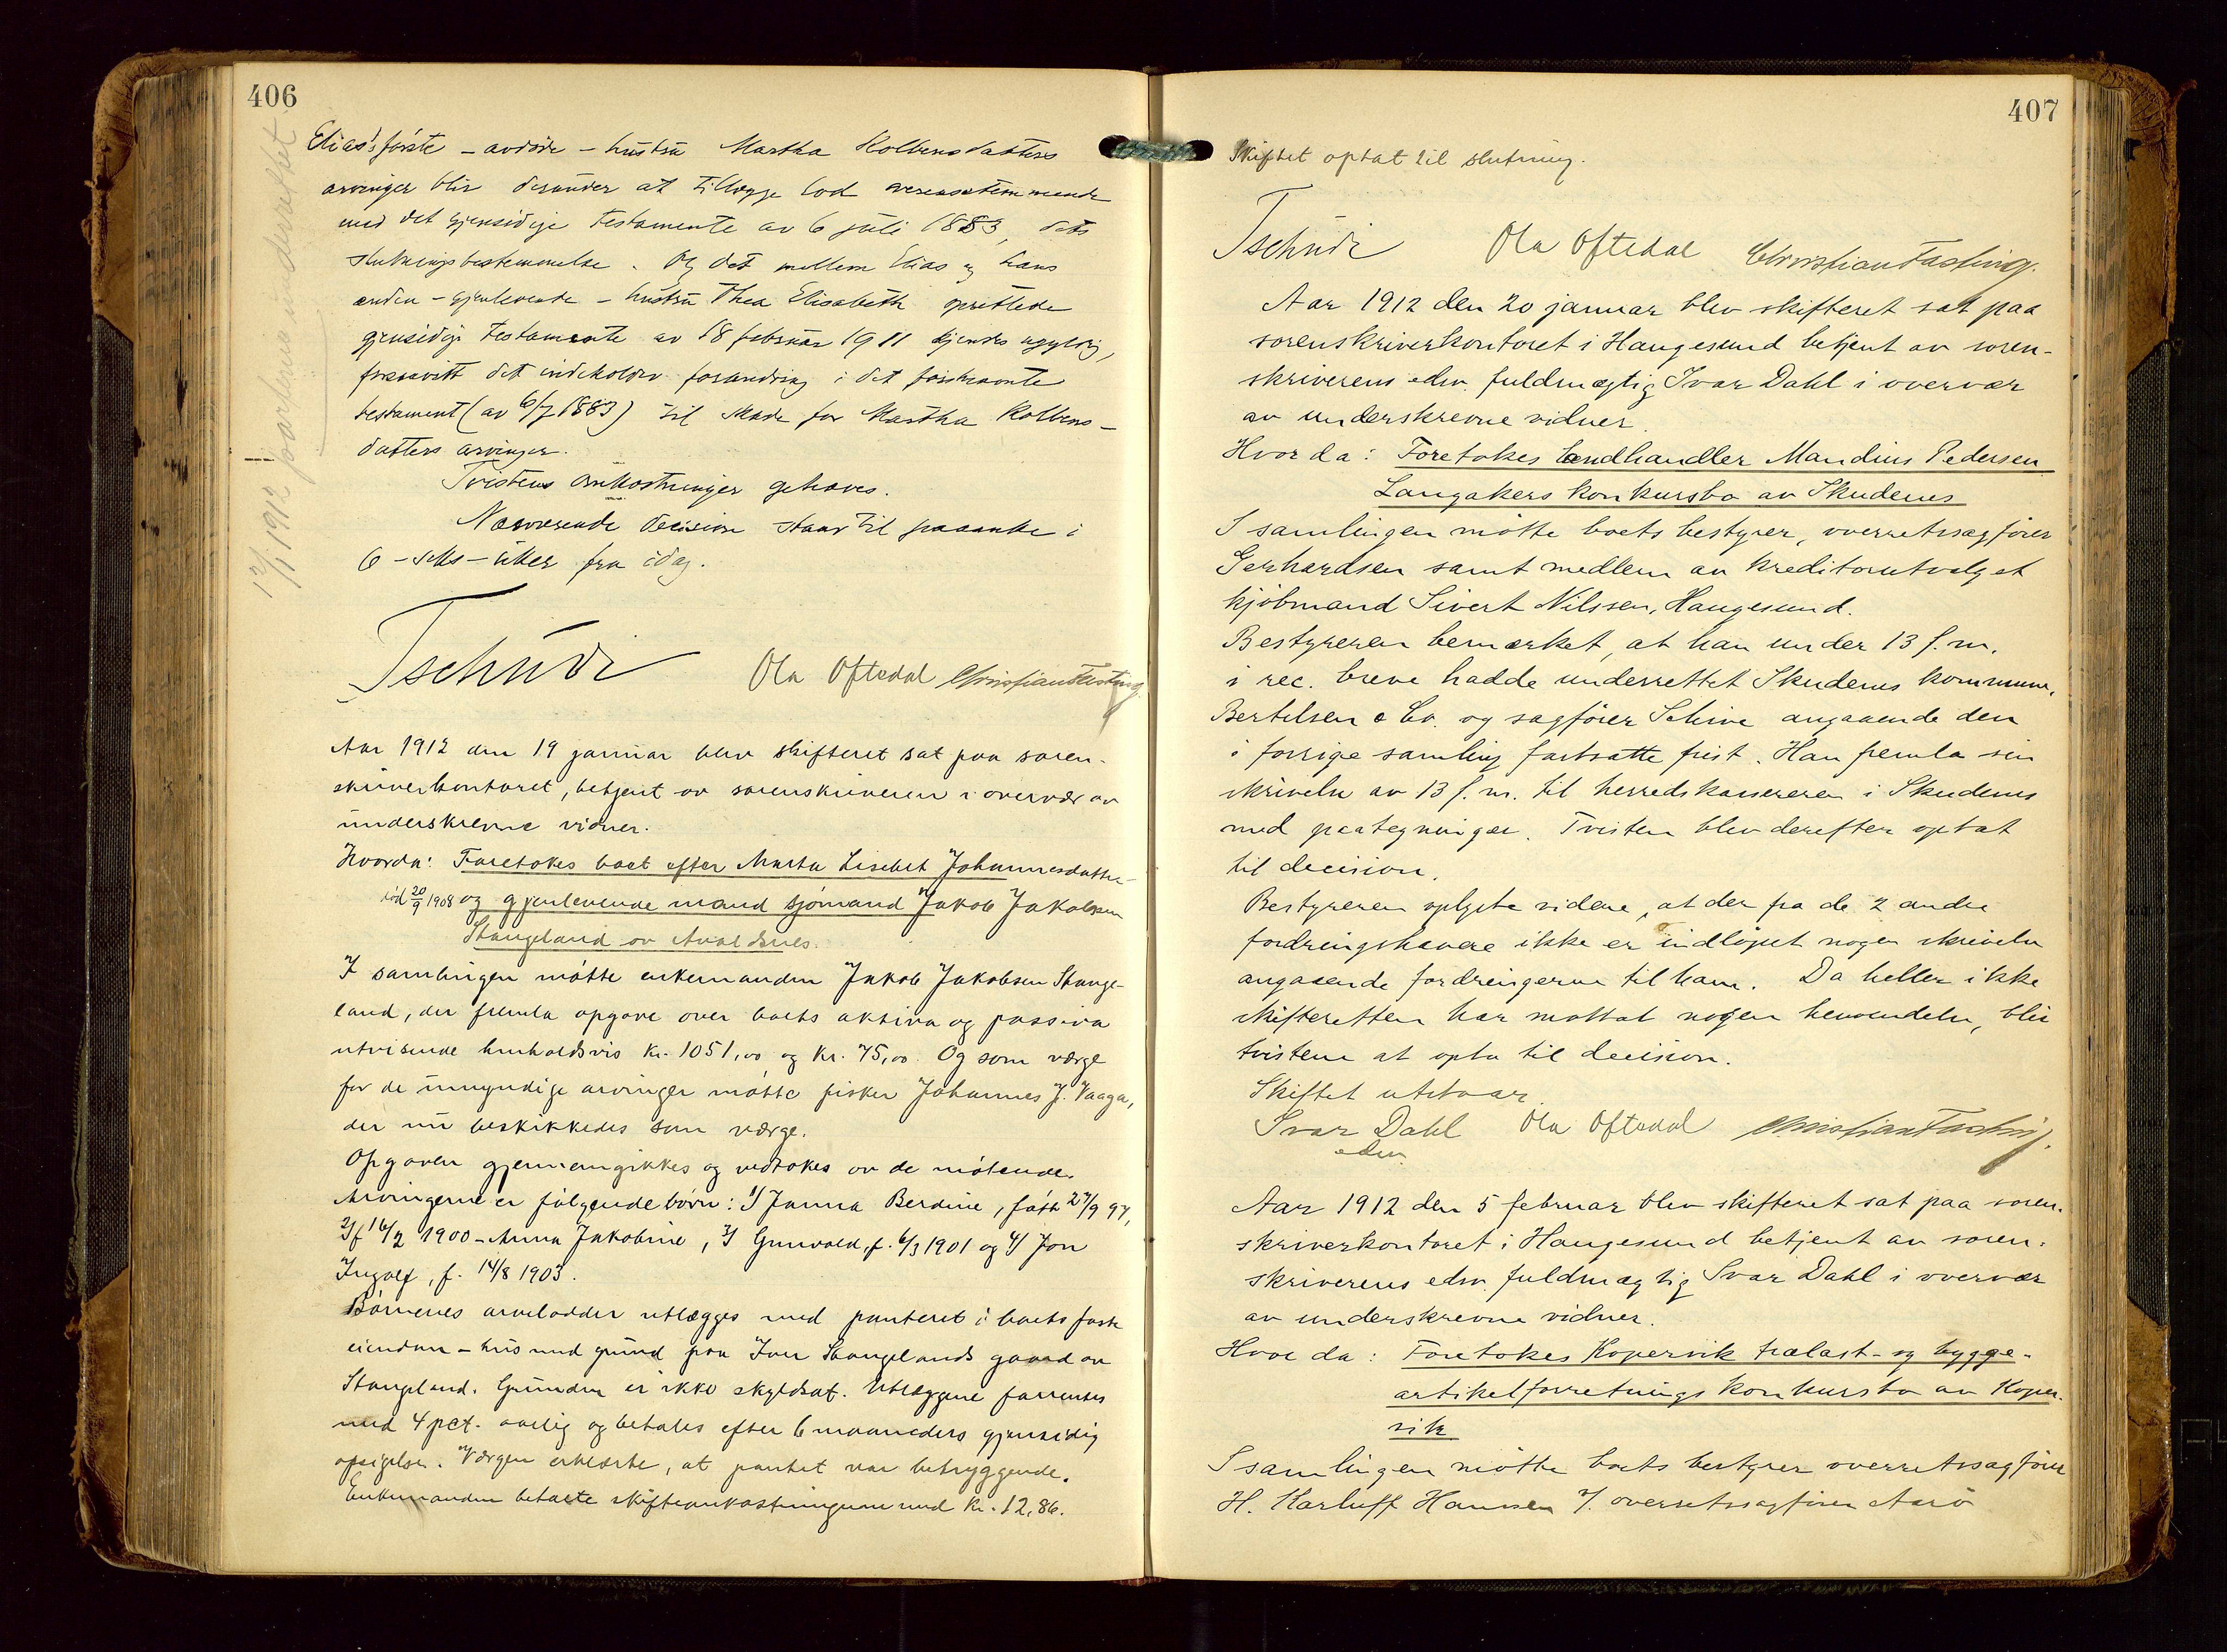 406
12/1 1912 paarluma underrettet.
Elias's første – avdøde – hustru Martha Kolbensdatters
arvinger blir derunder at tillægge lod overensstemmende
med det gjensidige testamente av 6 juli 1883, dets
slutningsbestemmelse. Og det mellem Elias og hans
anden – gjenlevende – hustru Thea Elisabeth oprettede
gjensidige testamente av 18 februar 1911 kjendes ugyldig,
forsaavitt det indeholder forandring i det førstnævnte
testament (av 6/7 1883) til skade for Martha Kolbens-
datters arvinger.
Tvistens omkostninger hæves.
Nærværende decision staar til paaanke i
6 – seks – uker fra idag.
Tschudi Ola Oftedal Christian Fasting.
Aar 1912 den 19 januar blev skifteret sat paa soren-
skriverkontoret, betjent av sorenskriveren i overvær av
underskrevne vidner.
Hvorda: Foretokes boet efter Marta Lisebet Johannesdatter
død 20/9 1908 og gjenlevende mand sjømand Jakob Jakobsen
Stangeland av Avaldsnes.
I samlingen møtte enkemanden Jakob Jakobsen Stange-
land, der fremla opgave over boets aktiva og passiva
utvisende henholdsvis kr. 1051,00 og kr. 75,00. Og som værge
for de umyndige arvinger møtte fisker Johannes J. Vaaga,
der nu beskikkedes som værge.
Opgaven gjennemgikkes og vedtokes av de møtende.
Arvingerne er følgende børn: 1/ Janna Berdine, født 27/9 97,
2/ f 16/2 1900 – Anna Jakobine, 3/ Gunvald, f. 6/3 1901 og 4/ Jon
Ingolf, f. 14/8 1903.
Børnenes arvelodder utlægges med panteret i boets faste
eiendom – hus med grund paa Iver Stangelands gaard av
Stangeland. Grunden er ikke skyldsat. Utlæggene forrentes
med 4 pct. aarlig og betales efter 6 maaneders gjensidig
opsigelse. Værgen erklærte, at pantet var betryggende.
Enkemanden betalte skifteomkostningerne med kr. 12,86.
407
Skiftet optat til slutning.
Tschudi Ola Oftedal Christian Fasting.
Aar 1912 den 20 januar blev skifteret sat paa
sorenskriverkontoret i Haugesund betjent av soren-
skriverens edsv. fuldmægtig Ivar Dahl i overvær
av underskrevne vidner.
Hvor da: Foretokes Landhandler Mandius Pedersen
Langakers konkursbo av Skudenes
I samlingen møtte boets bestyrer, overretssagfører
Gerhardsen samt medlem av kreditorutvalget
kjøbmand Sivert Nilssen, Haugesund.
Bestyreren bemærket, at han under 13 f. m.
i rec. breve hadde underrettet Skudenes kommune,
Bertelsen & Co. og sagfører Schive angaaende den
i forrige samling fastsatte frist. Han fremla sin
skrivelse av 13 f. m. til herredskassereren i Skudenes
med paategninger. Tvisten blev derefter optat
til decision.
Bestyreren oplyste videre, at der fra de 2 andre
fordringshavere ikke er indløpet nogen skrivelse
angaaende fordringerne til ham. Da heller ikke
skifteretten har mottat nogen henvendelse, blir
tvistene at opta til decision.
Skiftet utstaar.
Ivar Dahl Ola Oftedal Christian Fasting.
edsv.
Aar 1912 den 5 februar blev skifteret sat paa soren-
skriverkontoret i Haugesund betjent av soren-
skriverens edsv. fuldmægtig Ivar Dahl i overvær
av underskrevne vidner.
Hvor da: Foretokes Kopervik trælast- og bygge-
artikelforretnings konkursbo av Koper-
vik
I samlingen møtte boets bestyrer overretssagfører
H. Karluff Hansen v/ overretssagfører Aarø